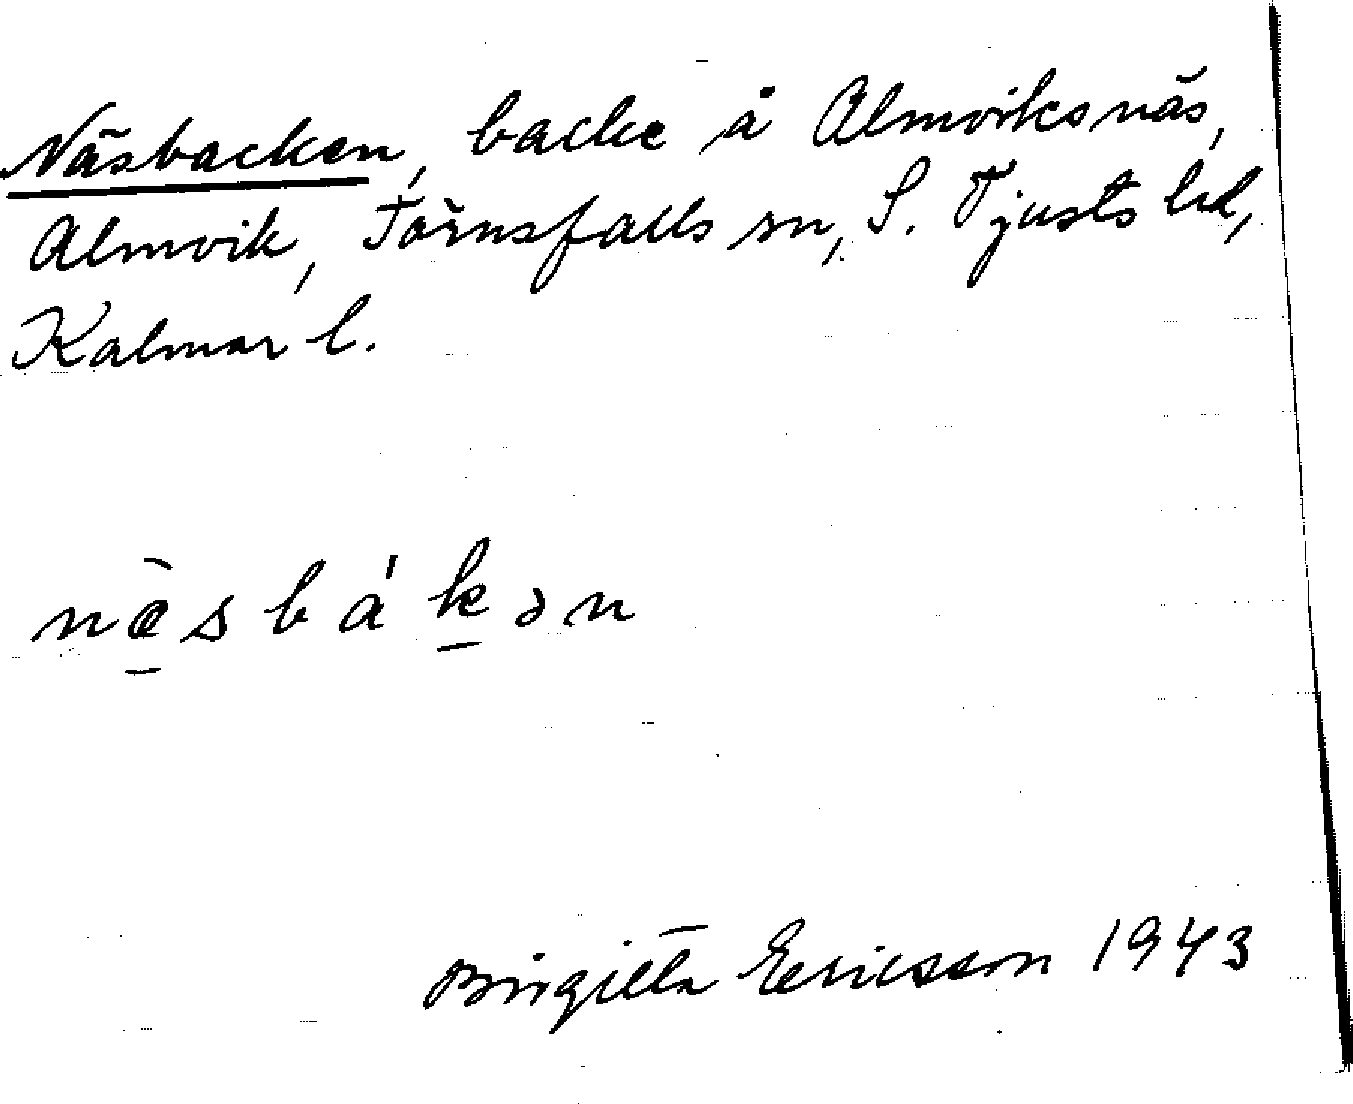 Näsbacken, backe å Almviksnäs,
Almvik, Törnsfalls sn, S. Tjusts hd,
Kalmar l.
næ̀sbákən
Birgitta Ericsson 1943